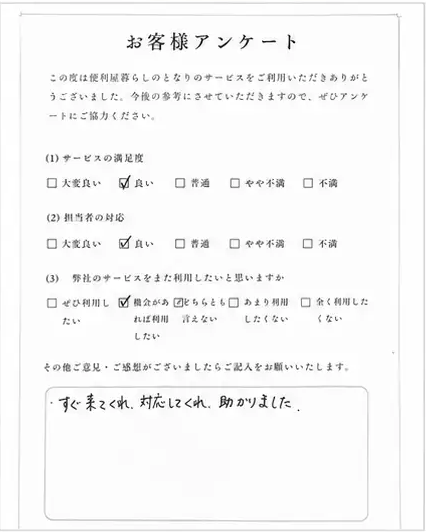 お客様アンケート
この度は便利屋暮らしのとなりのサービスをご利用いただきありがと
うございました。今後の参考にさせていただきますので、ぜひアンケ
ートにご協力ください。
(1) サービスの満足度
□ 大変良い ☑ 良い □ 普通 □ やや不満 □ 不満
(2) 担当者の対応
□ 大変良い ☑ 良い □ 普通 □ やや不満 □ 不満
(3) 弊社のサービスをまた利用したいと思いますか
□ ぜひ利用し ☑ 機会があ ☑ どちらとも □ あまり利用 □ 全く利用した
たい れば利用 言えない したくない くない
したい
その他ご意見・ご感想がございましたらご記入をお願いいたします。
・すぐ来てくれ、対応してくれ、助かりました.